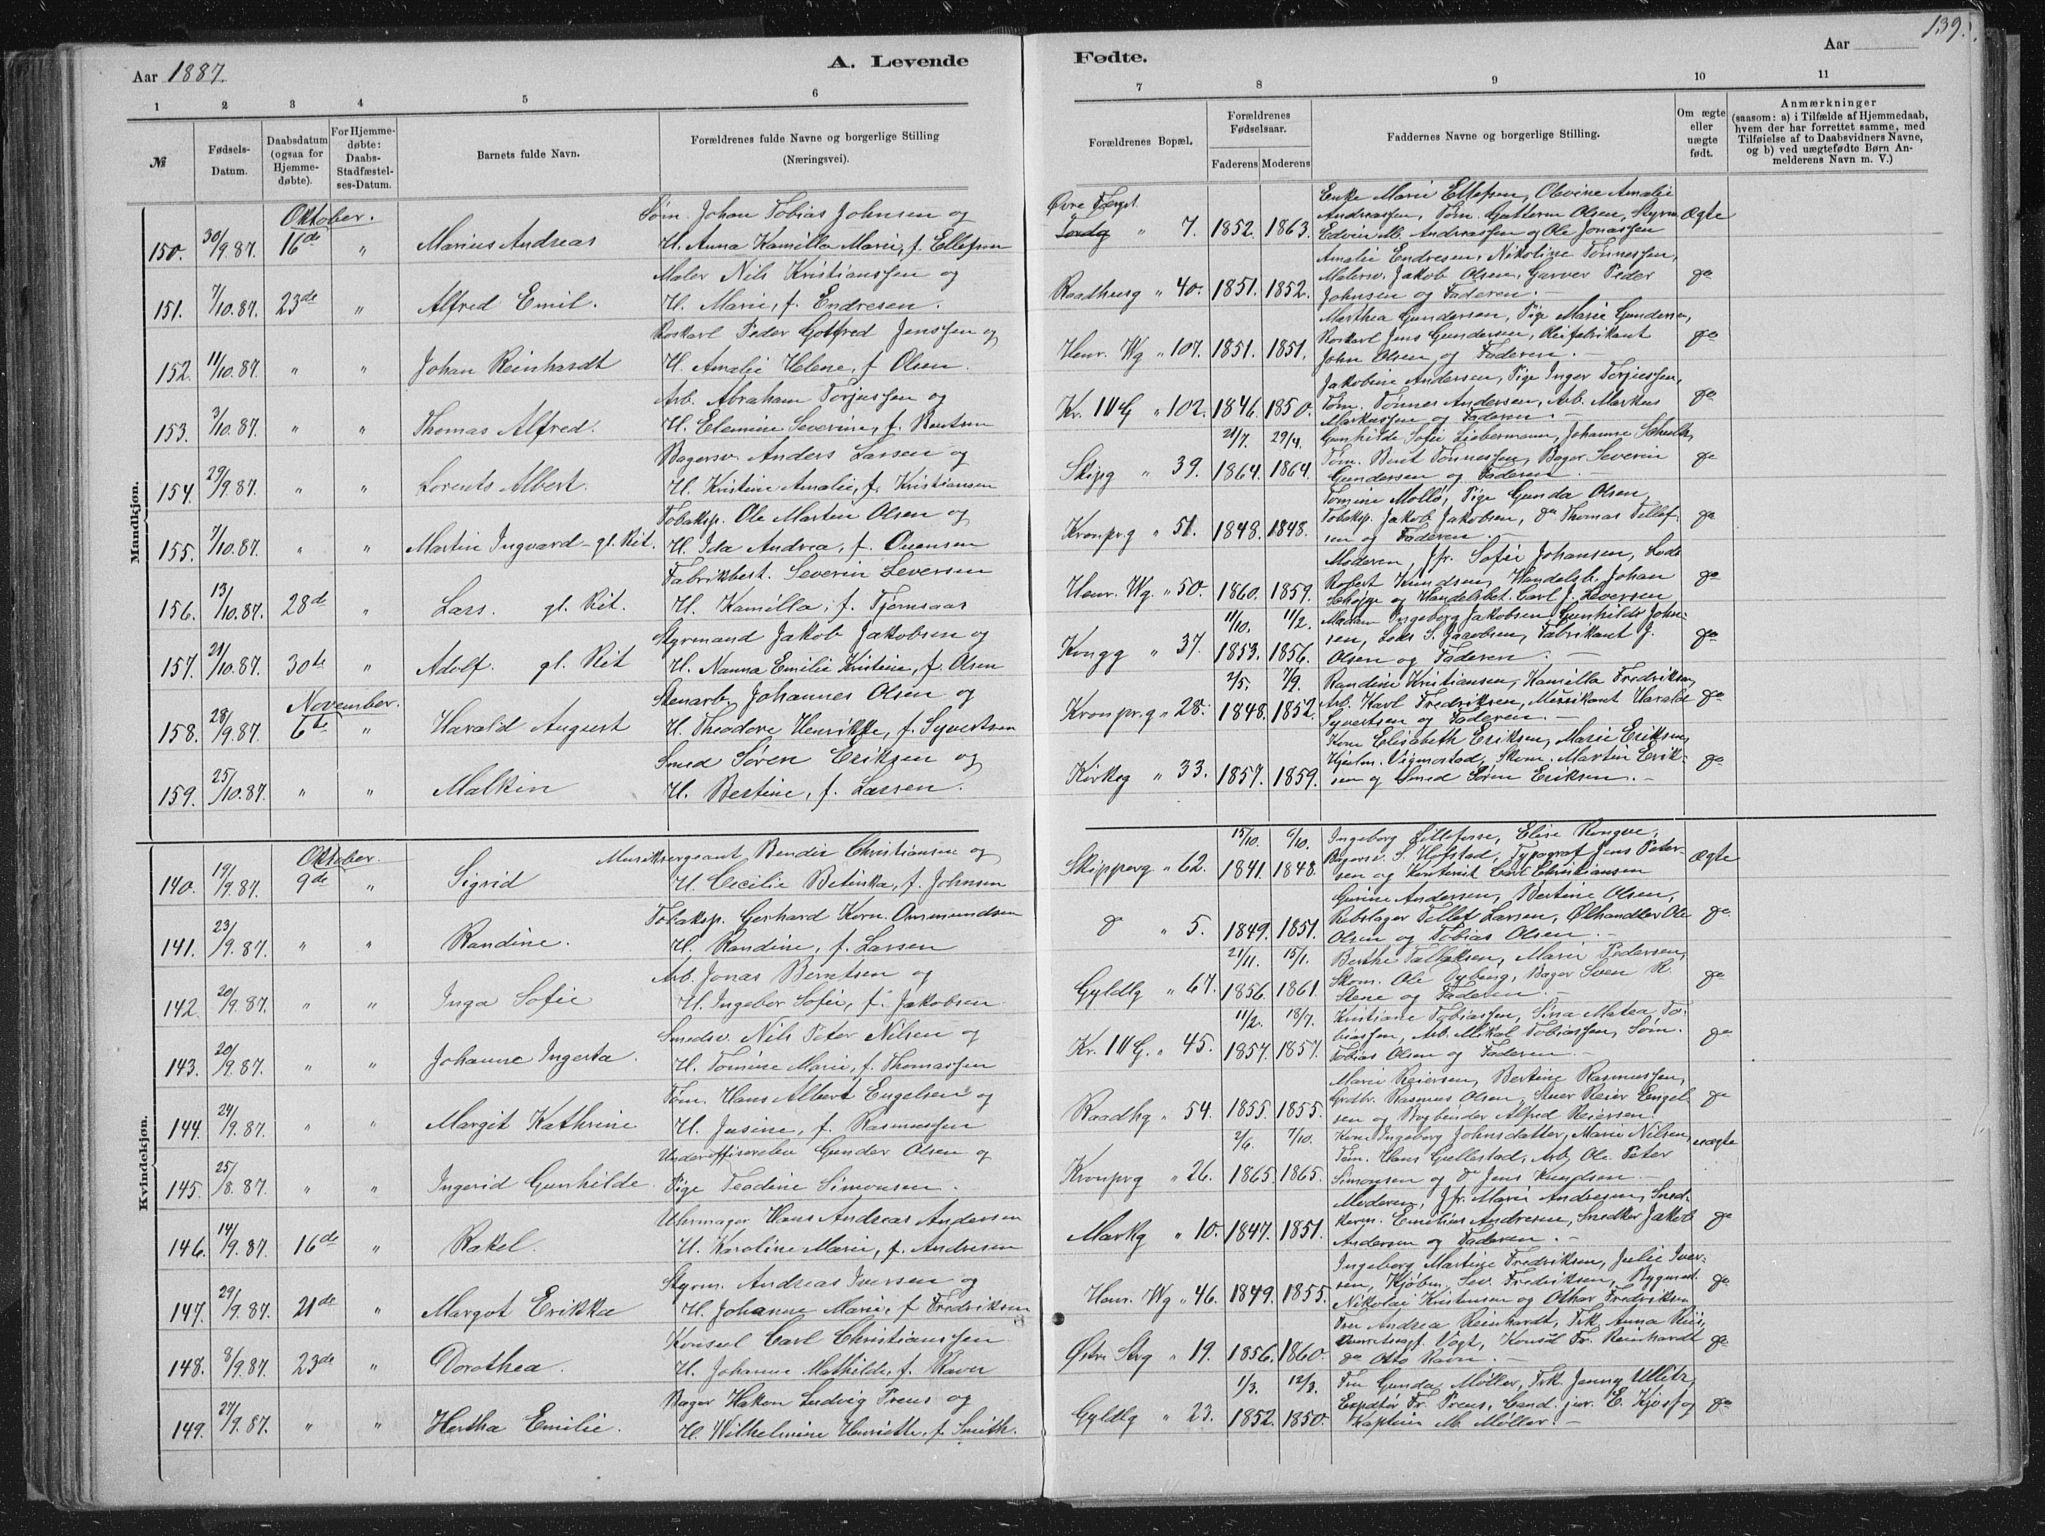 139.
Aar 1887.
A. Levende
Fødte.
Aar
1 2 3 4 5 6 7 8 9 10 11
№
Fødsels-Datum.
Daabsdatum (ogsaa for Hjemmedøbte).
For Hjemmedøbte: Daabs-Stadfæstelses-Datum.
Barnets fulde Navn.
Forældrenes fulde Navne og borgerlige Stilling (Næringsvei).
Forældrenes Bopæl.
Forældrenes Fødselsaar.
Faderens Moderens
Faddernes Navne og Stilling.
Om ægte eller uægte født.
Anmærkninger (saasom: a) i Tilfælde af Hjemmedaab, hvem der har forrettet samme, med Tilføielse af to Daabsvidners Navne, og b) ved uægtefødte Børn Anmelderens Navn m. V.)
Mandkjøn.
Oktober.
150. 30/9.87. 16de " Marius Andreas
Tøm. Johan Tobias Johnsen og
H. Anna Kamilla Marie, f. Ellefsen
Øvre Torvgt. " 7. 1852. 1863.
Enke Marie Ellefsen, Olevine Amalie
Andreassen, Tøm. Gutterm Olsen, Styrm.
Edvin M. Andreassen og Ole Jonassen
Ægte
151. 7/10.87. 23de " Alfred Emil.
Maler Nils Kristianssen og
H. Marie, f. Endresen.
Raadhusg " 40. 1851. 1852.
Amalie Endresen, Nikoline Tønnessen,
Malersv. Jakob Olsen, Garver Peder
Johnsen og Faderen.
do
152. 11/10.87. " " Johan Reinhardt
Roskarl Peder Gotfred Jenssen og
H. Amalie Helene, f. Olsen.
Henr. Wg " 107. 1851. 1851.
Marthea Gundersen, Pige Marie Gundersen,
Roskarl Jens Gundersen, Oliefabrikant
John Olsen og Faderen.
do
153. 3/10.87. " " Thomas Alfred.
Arb. Abraham Torjussen og
H. Elemine Severine, f. Bentsen
Kr. IV G " 102. 1846. 1850.
Jakobine Andersen, Pige Inger Torjussen,
Tøm. Tønnes Andersen, Arb. Markus
Markussen og Faderen.
do
154. 29/9.87. " " Lorents Albert.
Bagersv. Anders Larsen og
H. Kristine Amalie, f. Kristiansen
Skipg " 39. 21/7. 1864. 29/4. 1864.
Gunhilde Sofie Liebermann, Johanne Schulth,
Tøm. Bent Tønnessen, Bager Severin
Gundersen og Faderen
do
155. 7/10.87. " " Martin Ingvard - gl. Rit.
Tobaksp. Ole Martin Olsen og
H. Ida Andrea, f. Evensen
Kronprg " 51. 1848. 1848.
Tomine Mollø, Pige Gunda Olsen,
Tobaksp. Jakob Jakobsen, do Thomas Tellef-
sen og Faderen.
do
156. 13/10.87. 28d " Lars. gl. Rit.
Fabrikbest. Severin Seversen
H. Kamilla, f. Tjomsaas
Henr. Wg. " 50. 1860. 1859.
Moderen, Jfr. Sofie Johansen, Lods
Robert Knudsen, Handelsb. Johan
og Handelsbet. Carl J. Seversen
do
157. 21/10.87. 30te " Adolf. gl. Rit
Styrmand Jakob Jakobsen og
H. Nanna Emilie Kristine, f. Olsen
Kongg " 37. 11/10. 1853. 11/2. 1856.
Madam Ingeborg Jakobsen, Gunhilde John-
sen, Lods S. Jacobsen, Fabrikant J.
Olsen og Faderen.
do
November.
158. 28/9.87. 6te " Harald August
Stenarb. Johannes Olsen og
H. Theodore Henrikke, f. Syvertsen
Kronpr.g " 28. 2/5. 1848. 7/9. 1852.
Randine Kristiansen, Kamilla Fredriksen,
Arb. Karl Fredriksen, Musikant Harald
Syvertsen og Faderen.
do
159. 25/10.87. " " Malkin
Smed Søren Eriksen og
H. Bertine, f. Larsen.
Kirkeg " 33. 1857. 1859.
Kone Elisabeth Eriksen, Marie Eriksen,
Hjulm. Vigmostad, Skom. Martin Erik-
sen og Smed Søren Eriksen.
do
Kvindekjøn.
Oktober.
140. 19/9.87. 9de " Sigrid
Musiksergeant Bendix Christiansen og
H. Cecilie Betinka, f. Johnsen
Skipperg " 62. 15/10. 1841. 6/10. 1848.
Ingeborg Lillefosse, Elise Rongve,
Bagersv. S. Hofstad, Typograf Jens Peter-
sen og Kontorist Carl Christiansen
Ægte
141. 23/9.87. " " Randine.
Tobaksp. Gerhard Korn. Omsmundsen
H. Randine, f. Larsen
do " 5. 1849. 1851.
Gurine Andersen, Bertine Olsen,
Rebslager Tellef Larsen, Ølhandler Ole
Olsen og Tobias Olsen.
do
142. 20/9.87. " " Inga Sofie
Arb. Jonas Berntsen og
H. Ingebor Sofie, f. Jakobsen
Gyldlg " 67. 21/11. 1856. 15/1. 1861.
Berthe Tallaksen, Marie Pedersen,
Skom. Ole Dybing, Bager Sven R.
Stene og Faderen.
do
143. 20/9.87. " " Johanne Ingerta.
Smedsv. Nils Peter Nilsen og
H. Tomine Marie, f. Thomassen
Kr. IV G. " 45. 11/2. 1857. 18/7. 1857.
Kristiane Tobiassen, Sina Matea To-
biassen, Arb. Mikal Tobiassen, Søm.
Tobias Olsen og Faderen.
do
144. 24/9.87. " " Margit Kathrine
Tøm. Hans Albert Engelsen og
H. Jusine, f. Rasmussen
Raadhg " 54. 1855. 1855.
Marie Reiersen, Bertine Rasmussen,
Grdbr. Rasmus Olsen, Stuer Reier Engel-
sen og Bogbinder Alfred Reiersen.
do
145. 25/8.87. " " Ingerid Gunhilde.
Underoffisereleve Gunder Olsen og
Pige Teodine Simonsen.
Kronprg " 26. 2/6. 1865. 7/10. 1865.
Kone Ingeborg Johnsdatter, Marie Nilsen,
Tøm. Hans Gullestad, Arb. Ole Peter
Simonsen og do Jens Knudsen.
uægte
146. 14/9.87. 16de " Rakel.
Uhrmager Hans Andreas Andersen
H. Karoline Marie, f. Andresen
Markg " 10. 1847. 1851.
Moderen, Jfr. Marie Andresen, Sned-
kerm. Emilius Andresen, Snedker Jakob
Andersen og Faderen.
do
147. 29/9.87. 21de " Margot Erikka
Styrm. Andreas Iversen og
H. Johanne Marie, f. Fredriksen
Henr. Wg " 46. 1849. 1855.
Ingeborg Martine Fredriksen, Julie Iver-
sen, Kjøbm. Sev. Fredriksen, Bygmest.
Nikolai Kristensen og Othar Fredriksen
do
148. 8/9.87. 23de " Dorothea.
Konsul Carl Christianssen
H. Johanne Mathilde, f. Ravn
Østre Strg " 19. 1856. 1860.
Fru Andrea Reinhardt, Frk. Anna Riis,
Vogt, Konsul Fr. Reinhardt
do Otto Ravn.
do
149. 27/9.87. " " Hertha Emilie.
Bager Hakon Ludvig Preus og
H. Wilhelmine Henriette, f. Smith.
Gyldlg " 23. 1/3. 1852. 12/3. 1850.
Fru Gunda Møller, Frk. Jenny Ulletz,
Expditør Fr. Preus, Cand. jur. E. Kjos og
Kaptein M. Møller.
do